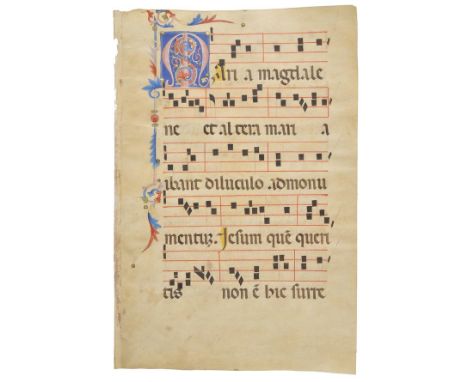 Mari a magdale
ne et altera mari a
ibant diluculo ad monu
mentuȝ. Jesum quē queri
tis non ē hic surre